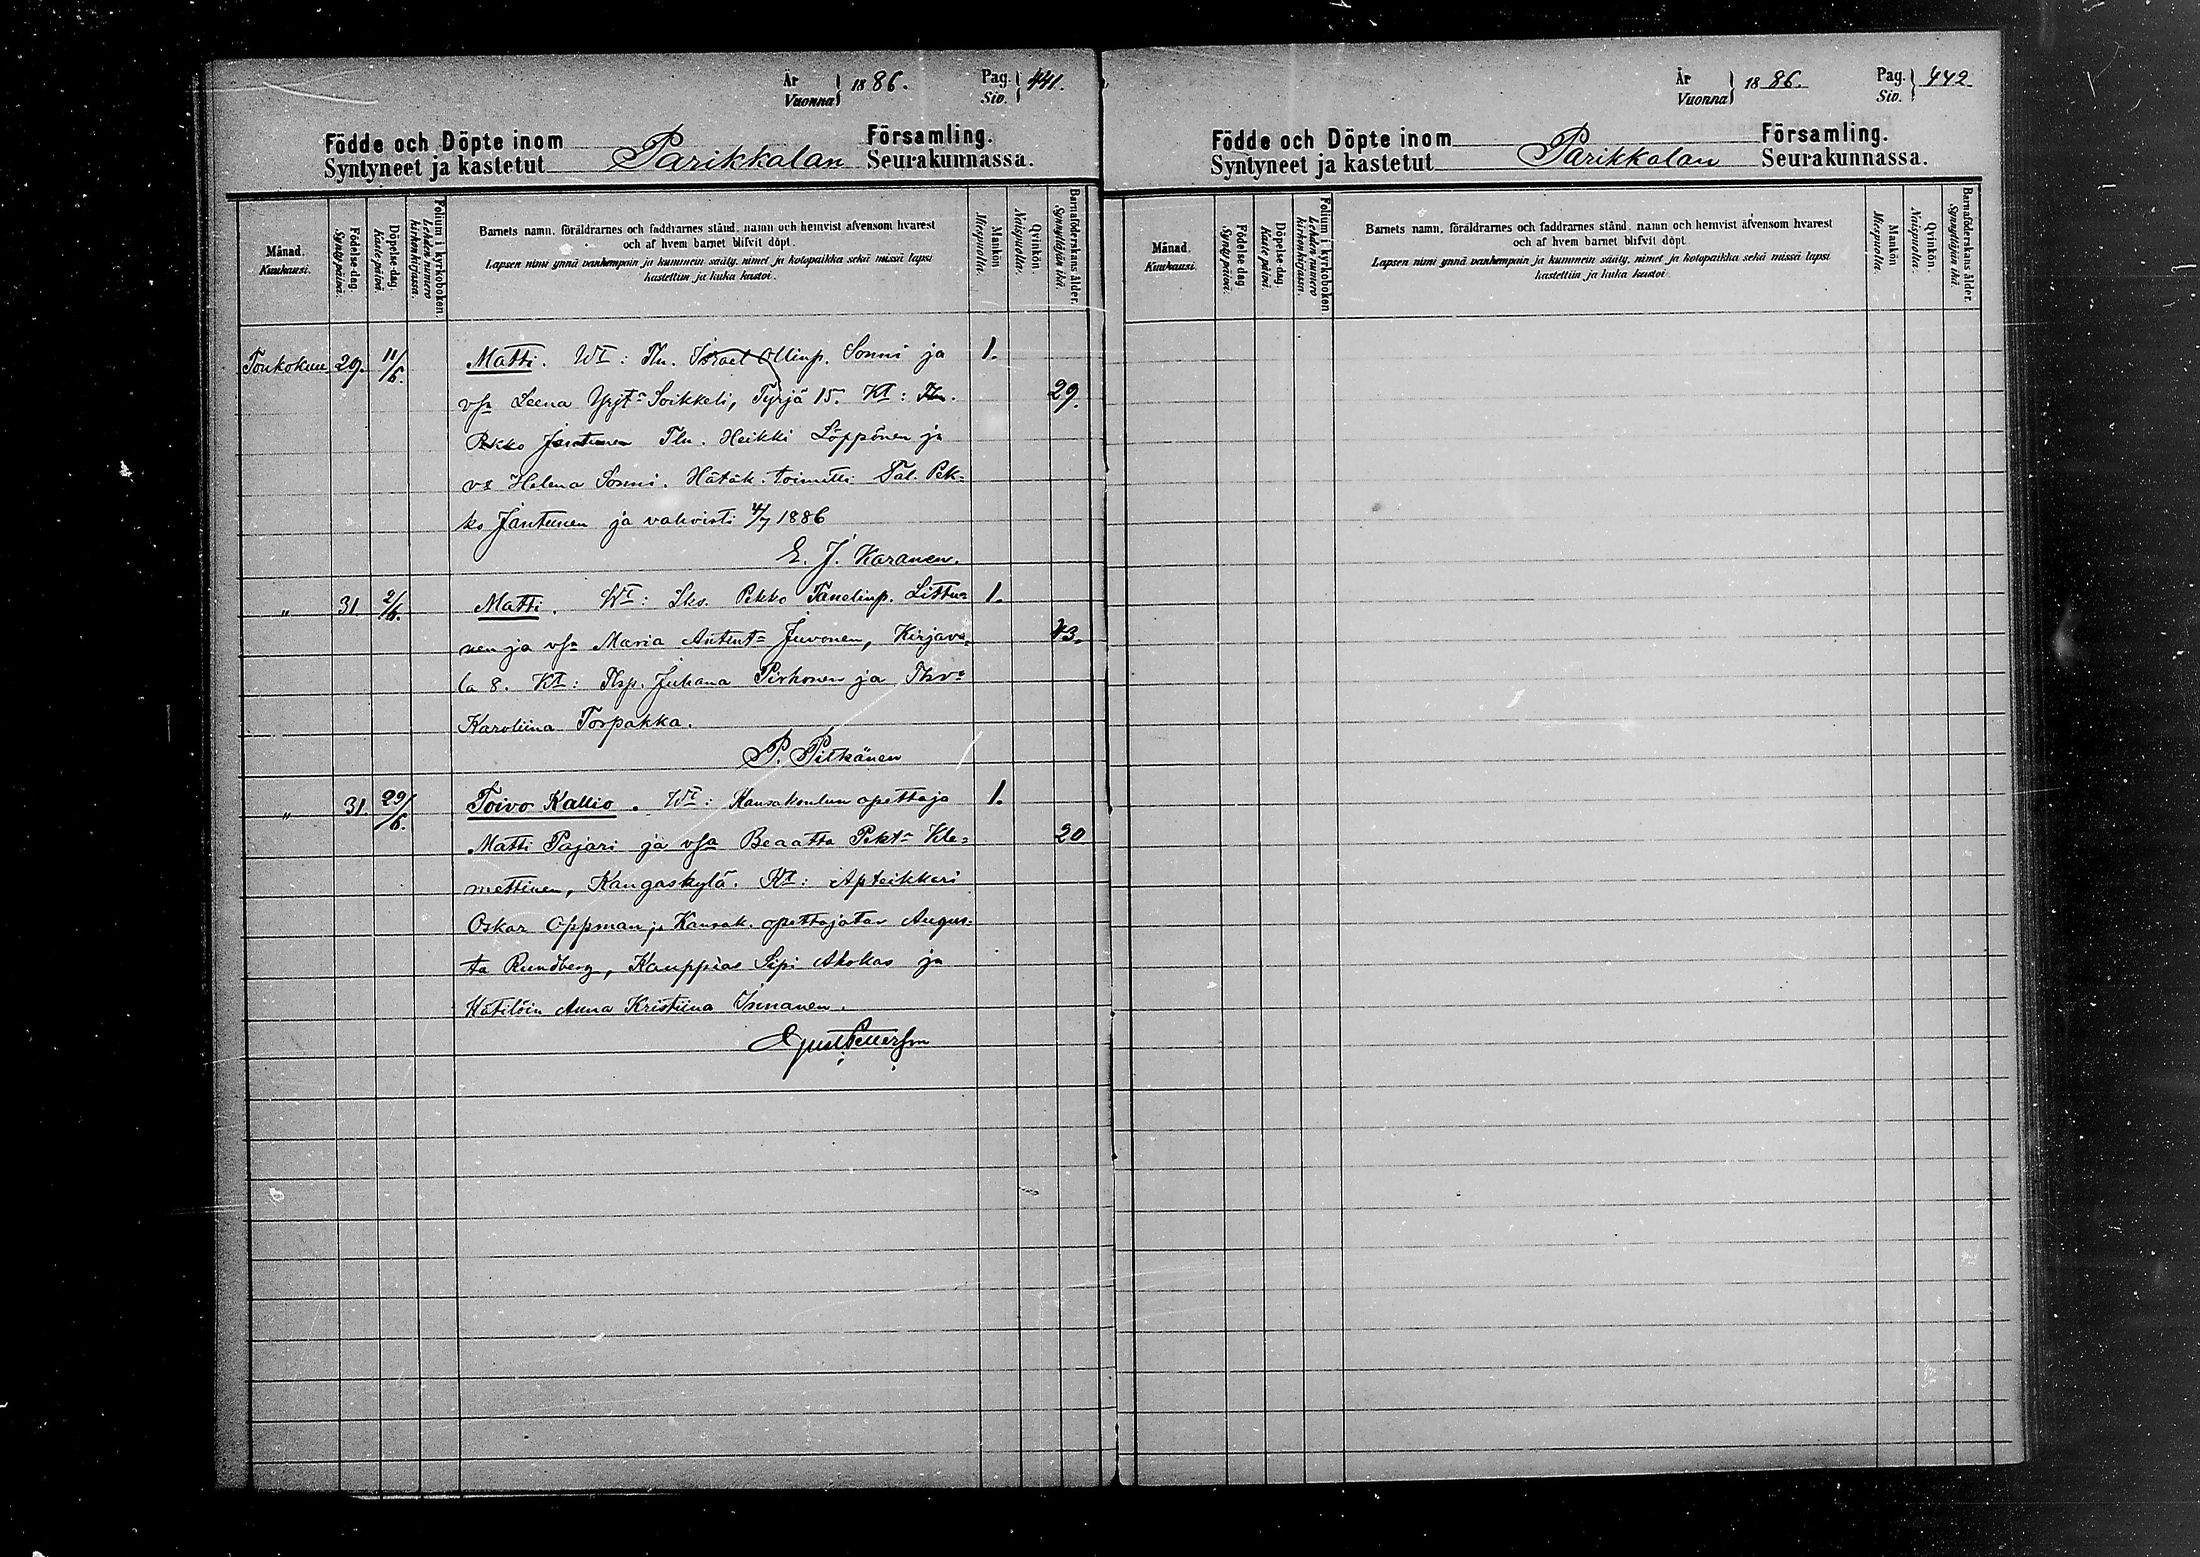 År
Vuonna 1886.
Pag.
Siv. 441.
Födde och Döpte inom Församling.
Syntyneet ja kastetut Parikkalan Seurakunnassa.
Månad.
Kuukausi.
Födelsedag.
Syntypäivä.
Döpelsedag.
Kastepäivä.
Folium i kyrkoboken.
Lehden numero kirkonkirjassa.
Barnets namn, föräldrarnes och faddrarnes stånd, namn och hemvist äfvensom hvarest
och af hvem barnet blifvit döpt.
Lapsen nimi ynnä vanhempain ja kummein sääty, nimet ja kotopaikka sekä missä lapsi
kastettiin ja kuka kastoi.
Mankön.
Miespuolia.
Qvinkön.
Naispuolia.
Barnaföderskans ålder.
Synnyttäjän ikä.
Toukokuu 29. 11/6. Matti. Wt: Tln. Israel Ollinp. Sonni ja 1.
vsa Leena Yrjt= Soikkeli, Tyrjä 15. Kt: Tln. 29.
Pekko Jantunen Tln. Heikki Löppönen ja
vs Helena Sonni. Hätäk. toimitti Tal. Pek=
ko Jantunen ja vahvisti 4/7 1886
E. J. Karanen.
" 31 2/6. Matti. Wt: Lks. Pekko Tanelinp. Littu= 1.
nen ja vsa Maria Antint= Juvonen, Kirjava= 43.
la 8. Kt: Thp. Juhana Pirhonen ja Thv=
Karoliina Torpakka.
P. Pitkänen
" 31. 29/6. Toivo Kallio. Wt: Kansakoulun opettaja 1.
Matti Pajari ja vsa Beaatta Pekt= Kle= 20
mettinen, Kangaskylä. Kt: Apteikkari
Oskar Oppman ja Kansak. opettajatar Augus=
ta Rundberg, Kauppias Sipi Akokas ja
Kätilöin Anna Kristiina Innanen.
År
Vuonna 1886.
Pag.
Siv. 442
Födde och Döpte inom Församling.
Syntyneet ja kastetut Parikkalan Seurakunnassa.
Månad.
Kuukausi.
Födelsedag.
Syntypäivä.
Döpelsedag.
Kastepäivä.
Folium i kyrkoboken
Lehden numero kirkonkirjassa.
Barnets namn, föräldrarnes och faddrarnes stånd, namn och hemvist äfvensom hvarest
och af hvem barnet blifvit döpt.
Lapsen nimi ynnä vanhempain ja kummein sääty, nimet ja kotopaikka sekä missä lapsi
kastettiin ja kuka kastoi.
Mankön
Miespuolia.
Qvinkön.
Naispuolia.
Barnaföderskans ålder.
Synnyttäjän ikä.